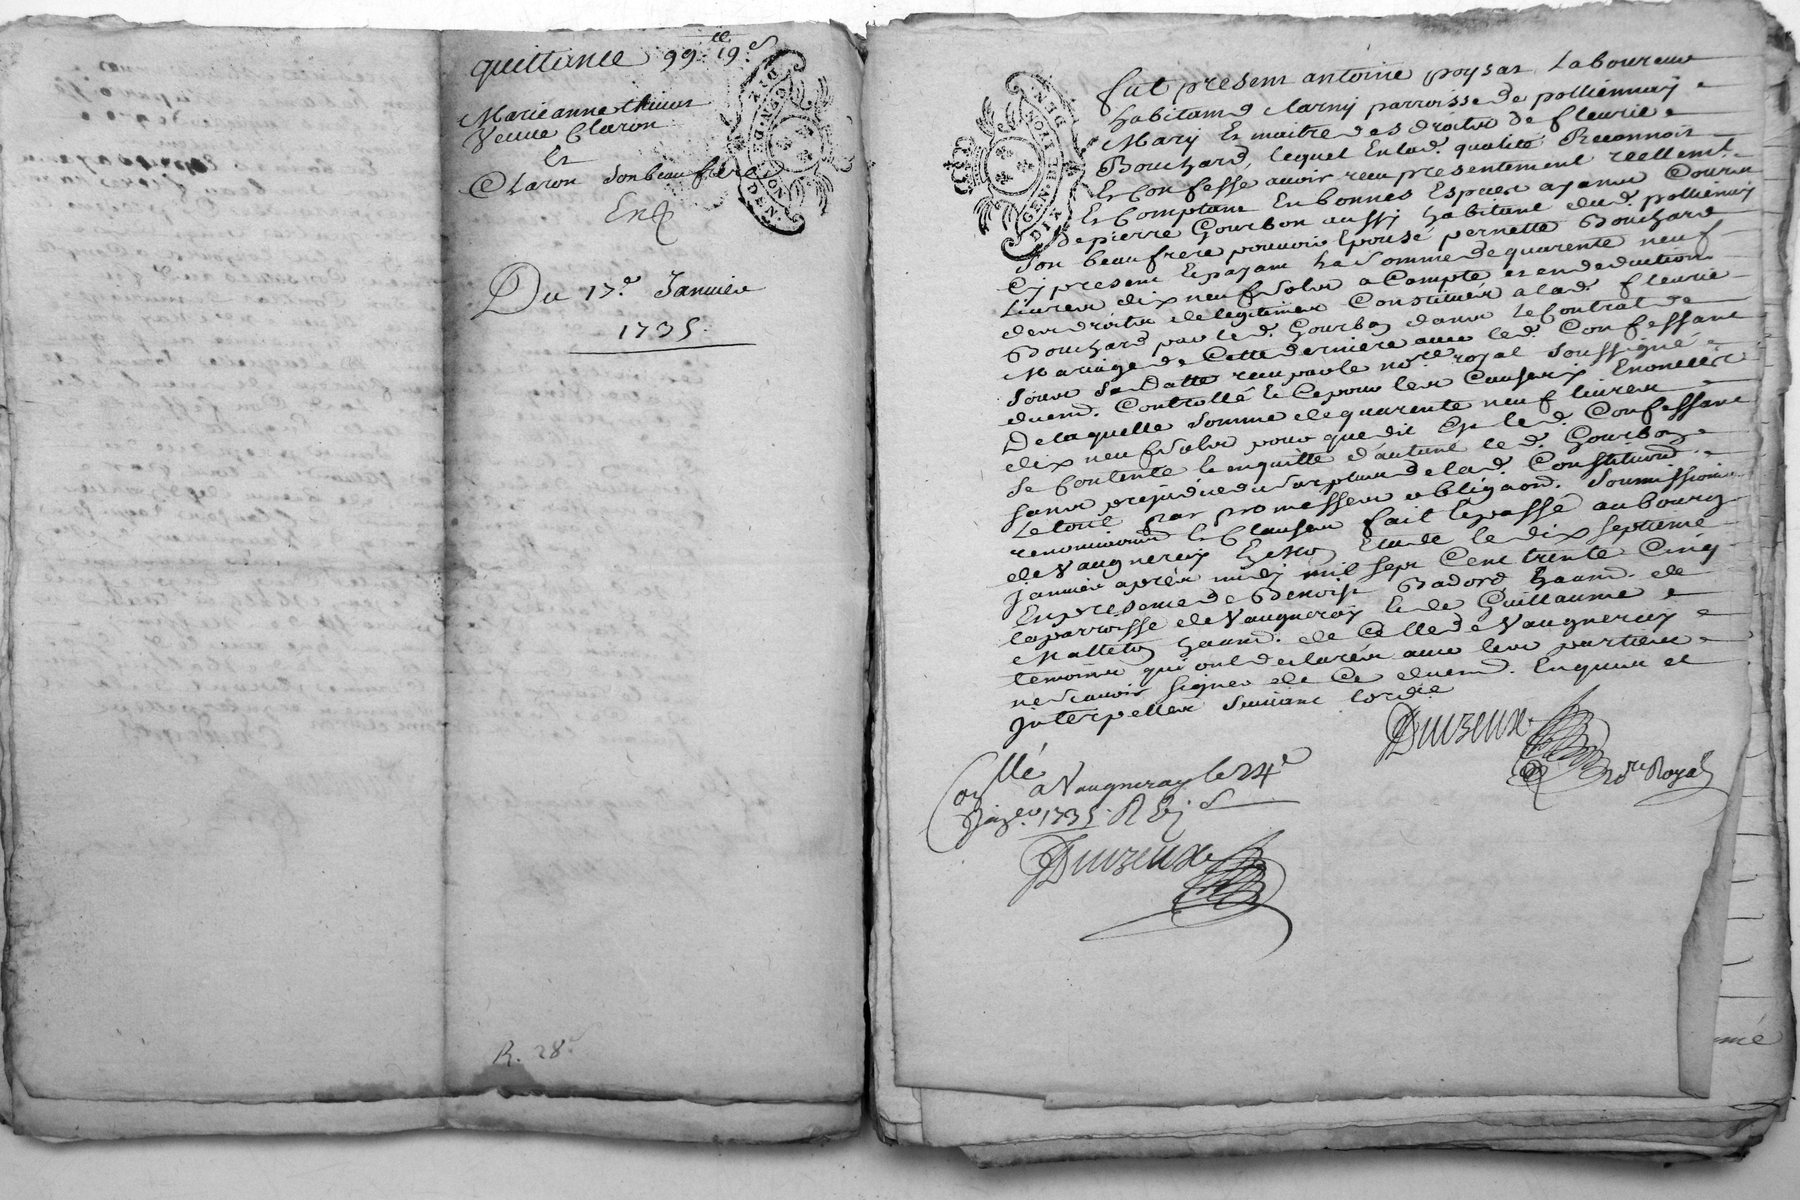 quittance 99tt 19s
Marieanne
Veuve Claron
Et
Claron son beau frere
Du 17e Janvier
1735.
R. 28s
GEN. DE LION
DIX DEN.
fut present antoine poysat Laboureur
habitant Larny parroisse de polliennay
Mary Et maitre des droits de fleurie
Bouchard, lequel En lad. qualité Reconnoit
Et Confesse avoir receu presentement reellemt.
Et Comptant En bonnes Especes ayant Cours
De pierre Gourbon aussy habitant dud. pollienay
Son beaufrere pour avoir Epousé pernette Bouchard
Cy present Et payant La somme de quarente neuf
Livres dix neuf sols a Compte et en deduction
des droits de legitimes Constitués a lad. fleurie
Bouchard par led. Gourbon dans le Contrat de
Mariage de Cette derniere avec led. Confessant
sous sa Datte receu par le nore. royal soussigné
duemt. Controllé Et Ce pour les Causes y Enoncées
De laquelle somme de quarente neuf livres
dix neuf sols pour que dit Est led. Confessant
se Contente Et en quitte d'autant led. Gourbon
sans prejudice du surplus de lad. Constituon.
Le tout par promesses obligaons. soumissions
renonciaons. Et Clauses fait Et passé au bourg
de Vaugneray Estude le dix septieme
janvier apres midy mil sept Cent trente Cinq
En presence de Benoist Badord habitt. de
la parroisse de Vaugneray Et de Guillaume
Matteton habitt. de Celle de Vaugneray
temoins qui ont declarés avec les parties
ne sçavoir signer de Ce duemt. Enquis et
interpellés suivant l'ordce
nore Royal
Conllé a Vaugneray le 24e
janver. 1735. R